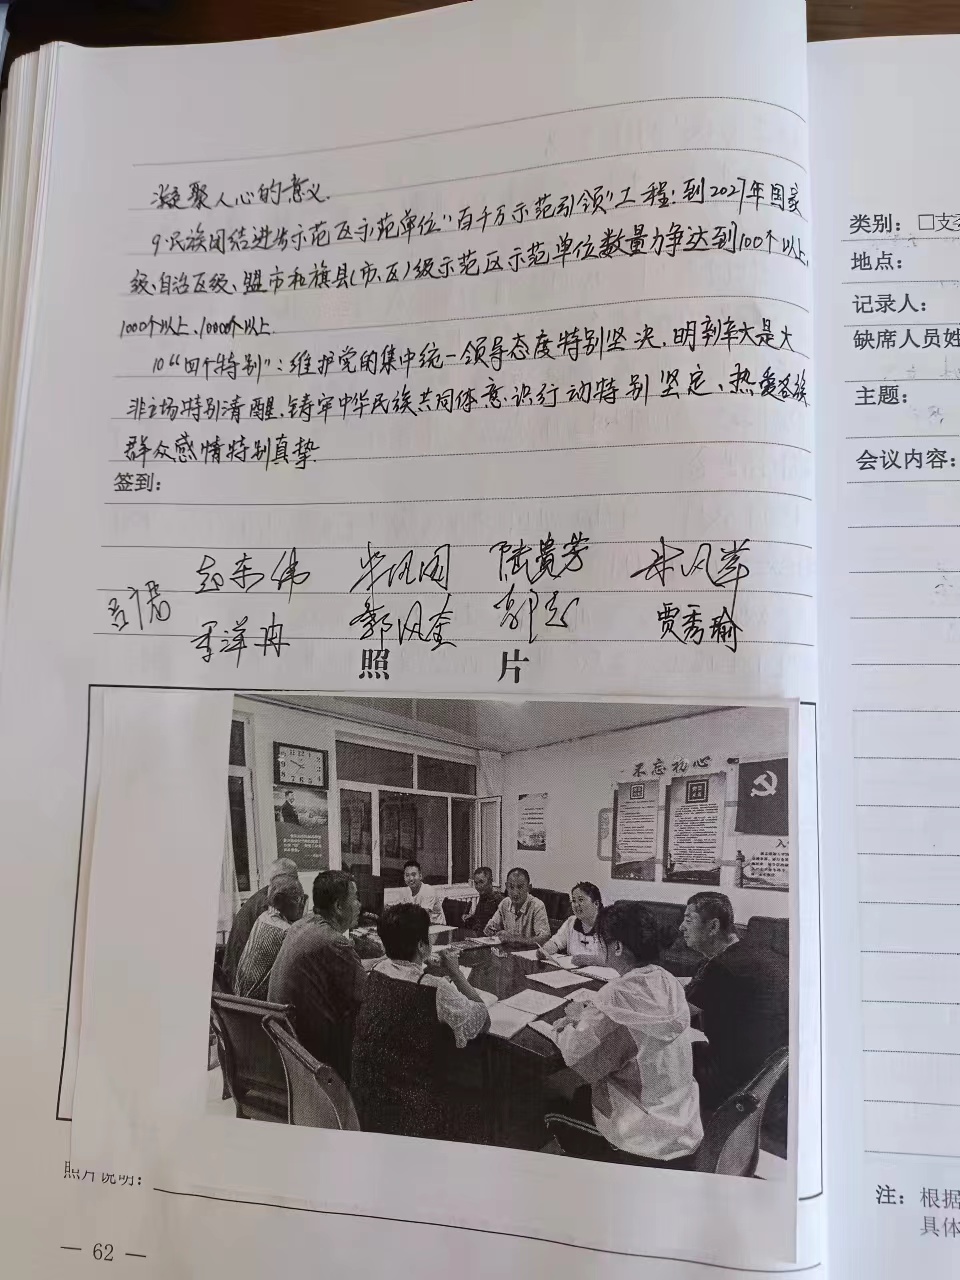 凝聚人心的意义.
9.民族团结进步示范区示范单位“百千万示范引领”工程:到2027年国家
级、自治区级、盟市和旗县(市、区)级示范区示范单位数量力争达到100个以上,
1000个以上、10000个以上.
10“四个特别”:维护党的集中统一领导态度特别坚决,明辨大是大
非立场特别清醒、铸牢中华民族共同体意识行动特别坚定、热爱各族
群众感情特别真挚.
签到:
赵东伟 陆贵芳
郭风奎 贾秀瑜
照 片
不忘初心
照片说明:
— 62 —
类别: □支
地点:
记录人:
缺席人员姓
主题:
会议内容:
注: 根据
具体